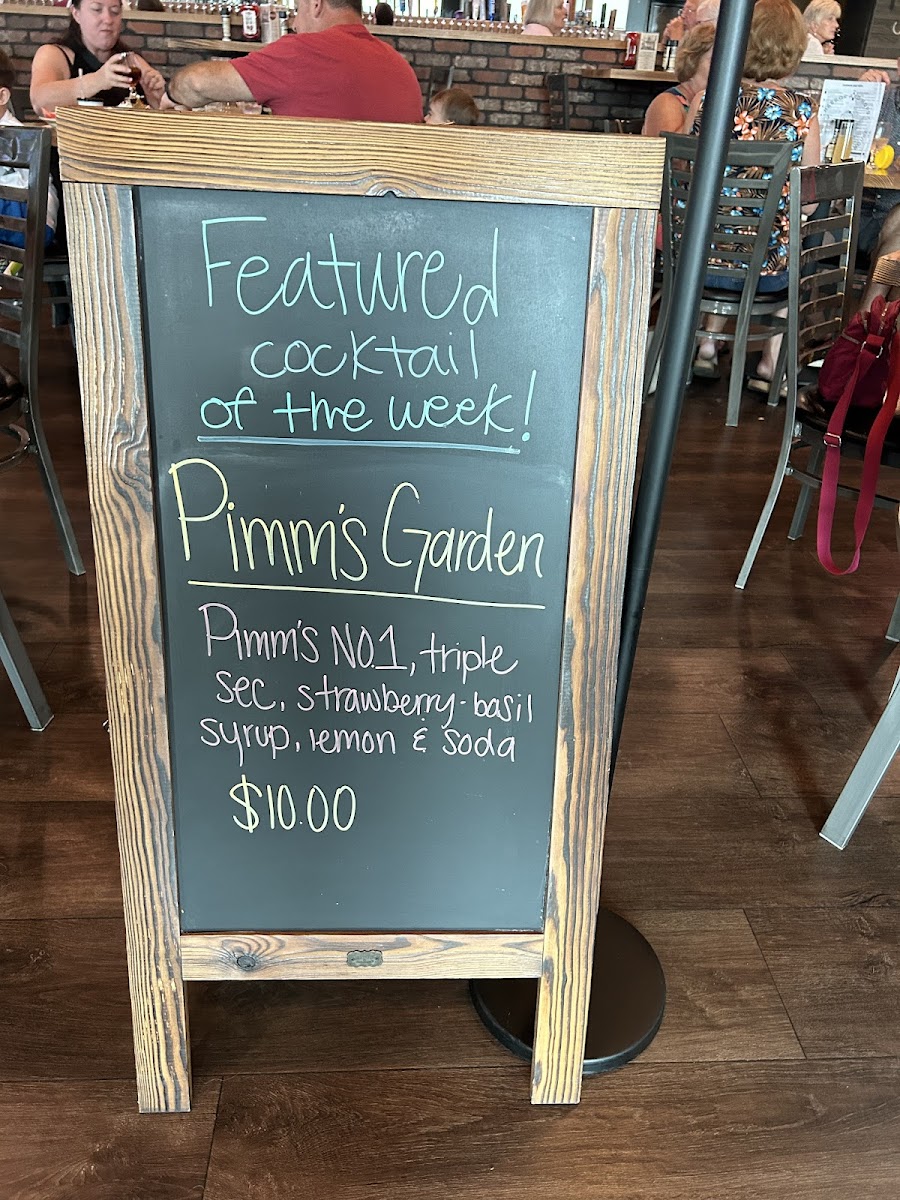 Featured
cocktail
of the week!
Pimm's Garden
Pimm's NO.1, triple
sec, strawberry-basil
syrup, lemon & soda
$10.00